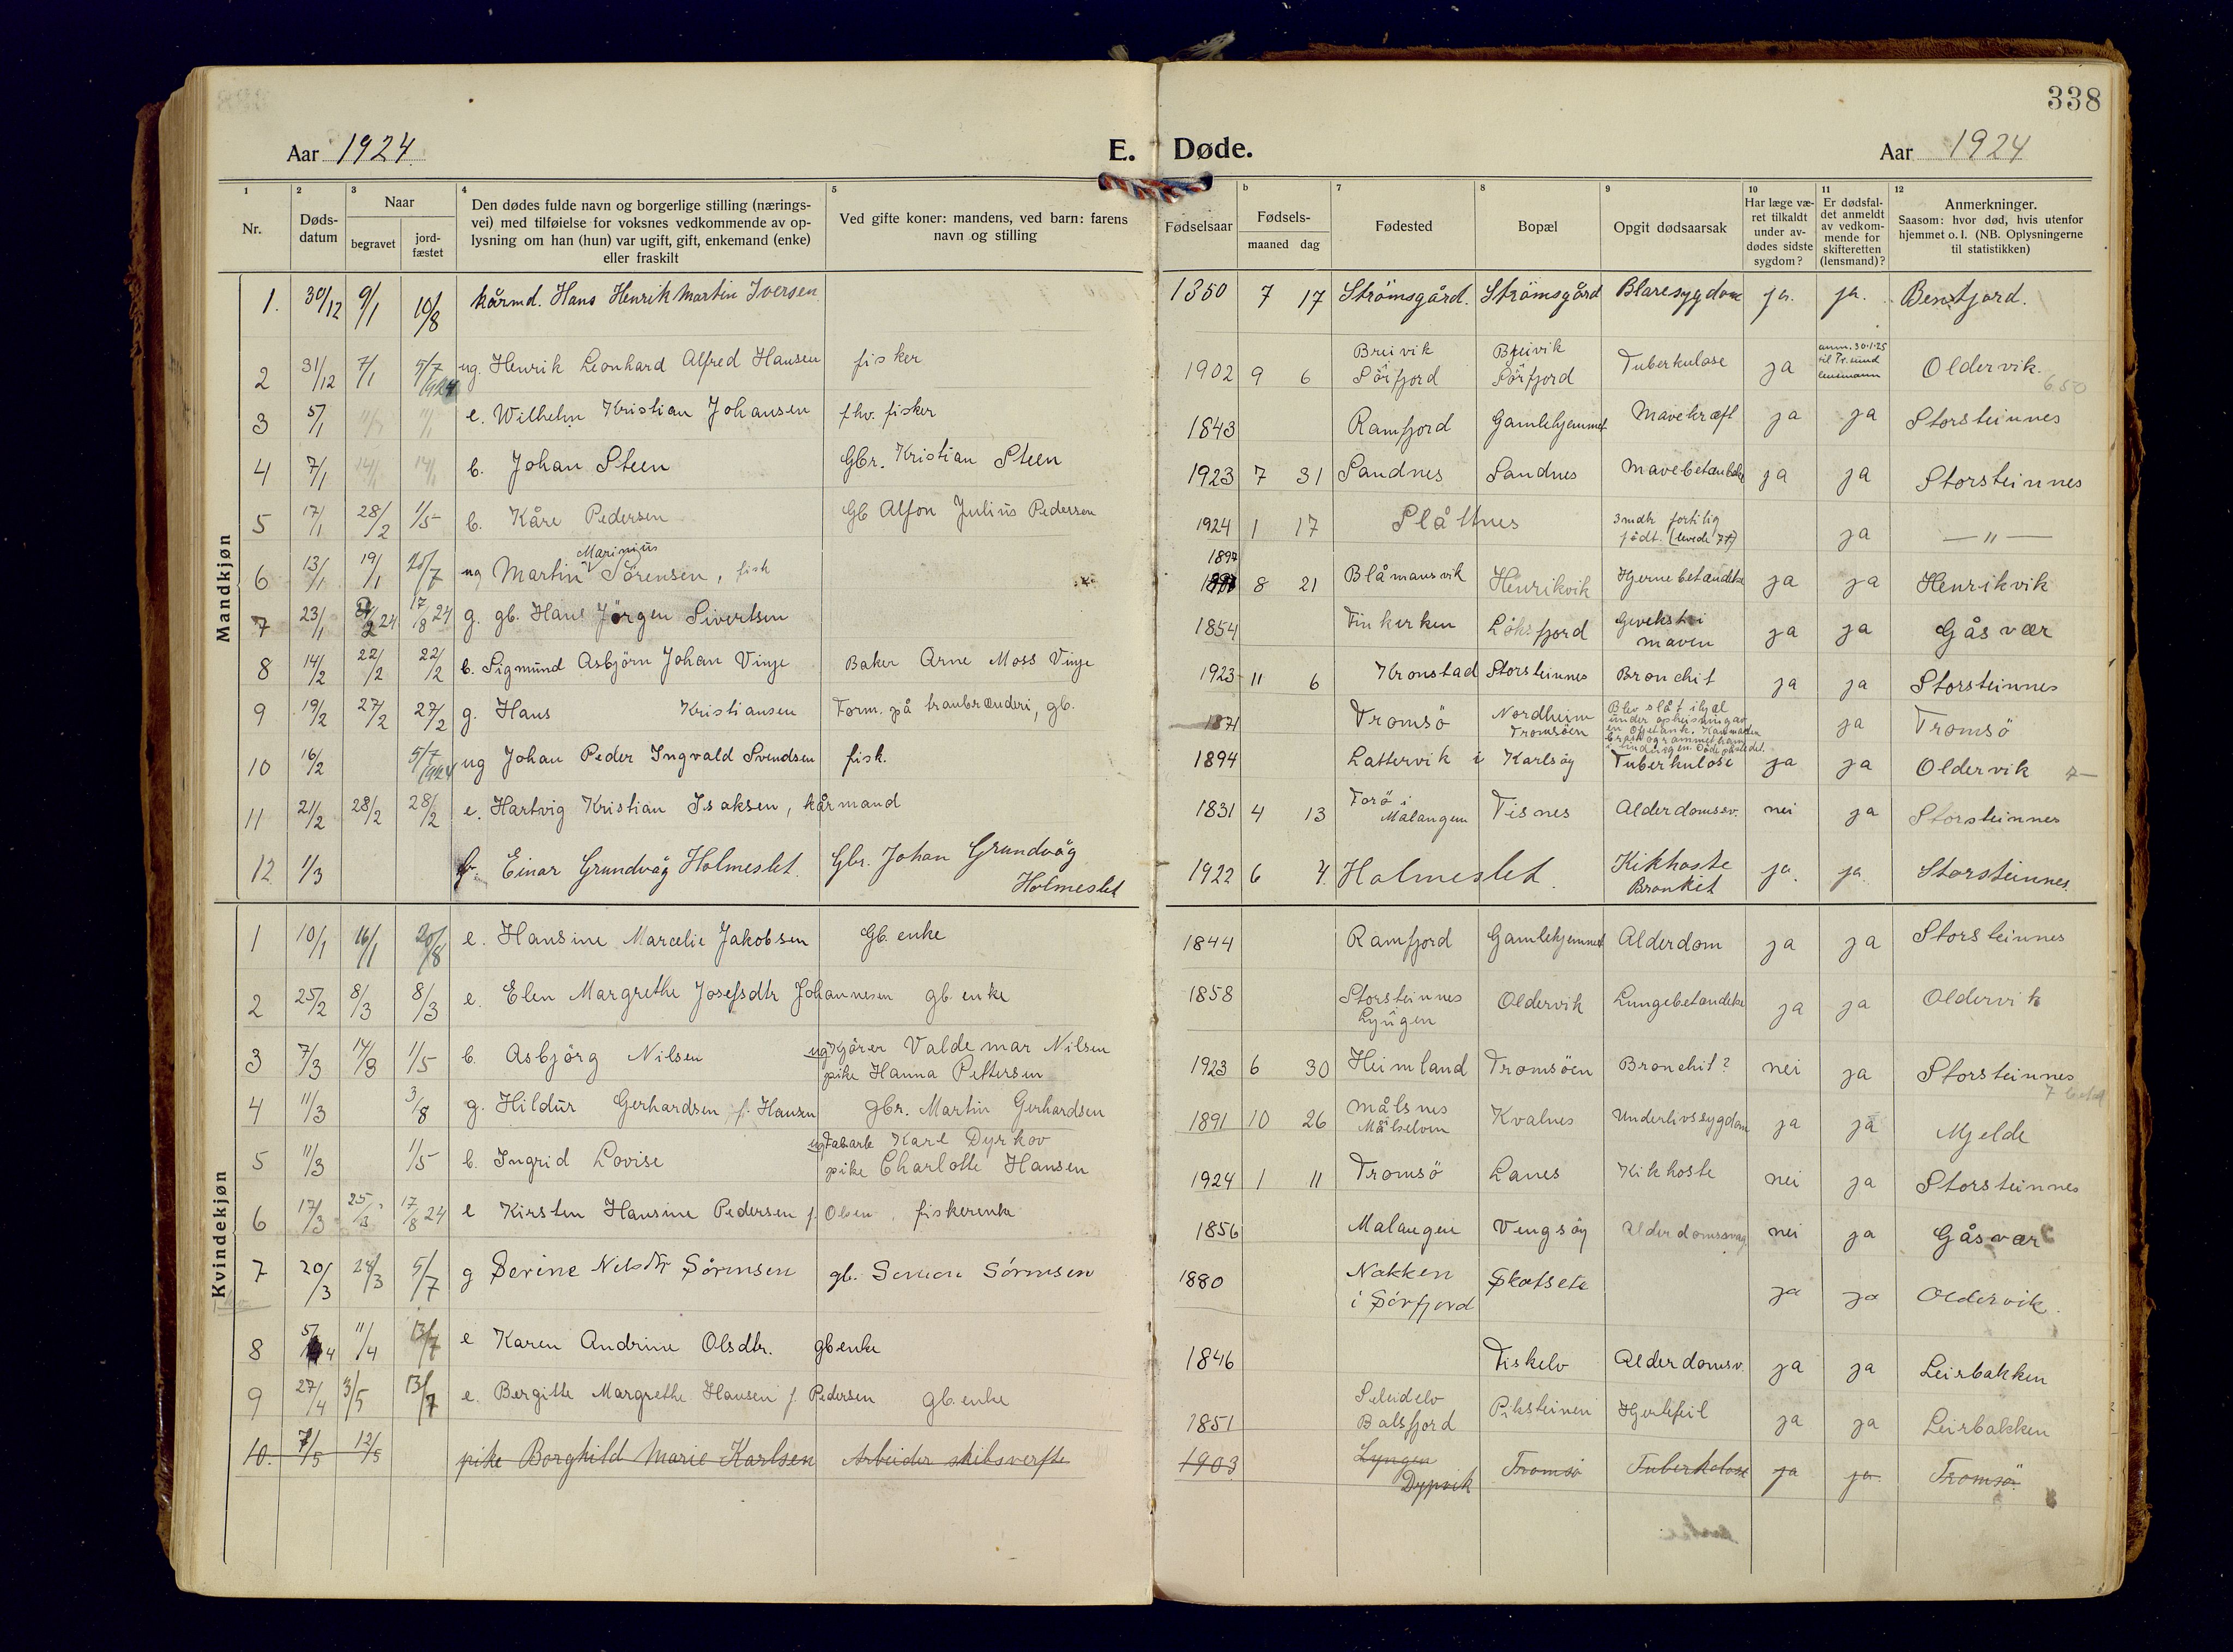 338
Aar 1924.
E. Døde.
Aar 1924
1 2 3 4 5 b 7 8 9 10 11 12
Nr.
Døds-
datum
Naar
begravet
jord-
fæstet
Den dødes fulde navn og borgerlige stilling (nærings-
vei) med tilføielse for voksnes vedkommende av op-
lysning om han (hun) var ugift, gift, enkemand (enke)
eller fraskilt
Ved gifte koner: mandens, ved barn: farens
navn og stilling
Fødselsaar
Fødsels-
maaned dag
Fødested
Bopæl
Opgit dødsaarsak
Har læge væ-
ret tilkaldt
under av-
dødes sidste
sygdom?
Er dødsfal-
det anmeldt
av vedkom-
mende for
skifteretten
(lensmand)?
Anmerkninger.
Saasom: hvor død, hvis utenfor
hjemmet o. l. (NB. Oplysningerne
til statistikken)
Mandkjøn
1. 30/12 9/1 10/8 kårmd. Hans Henrik Martin Iversen 1850 7 17 Strömsgård. Strömsgård Blaresygdom ja. ja. Bentjord.
2 31/12 7/1 5/7 1924 ug. Henrik Leonhard Alfred Hansen fisker 1902 9 6 Breivik Sörfjord Breivik Sörfjord Tuberkulose ja anm. 30.1.25 til Tr.sund lensmann Oldervik. 6.50
3 5/1 11/1 11/1 e. Wilhelm Kristian Johansen fhv. fisker 1843 Ramfjord Gamlehjemmet Mavekræft ja ja Storsteinnes
4 7/1 14/1 14/1 b. Johan Steen Gbr. Kristian Steen 1923 7 31 Sandnes Sandnes Mavebetændelse ja ja Storsteinnes
5 17/1 28/2 1/5 b. Kåre Pedersen Gb Alfon Julius Pedersen 1924 1 17 Slåttnes 3 mdr fortilig født. (levede 7 t) ja — " —
6 13/1 19/1 25/7 ug Martin Marinius Sörensen, fisk 1897 8 21 Blåmansvik Henrikvik Hjernebetændelse ja ja Henrikvik
7 23/1 2 24 17/8 24 g. gb. Hans Jørgen Sivertsen 1854 Finkerken Löksfjord Gevekst i maven ja ja Gåsvær
8 14/2 22/2 22/2 b. Sigmund Asbjörn Johan Vinje Baker Arne Moss Vinje 1923 11 6 Kronstad Storsteinnes Bronchit ja ja Storsteinnes
9 19/2 27/2 27/2 g. Hans Kristiansen Form. på tranbrænderi, gb. 1871 Tromsö Nordheim Tromsöen Blev slåt ihjel under opheisning av en oljetank. ja Tromsö
10 16/2 5/7 1924 ug Johan Peder Ingvald Svendsen fisk. 1894 Lattervik i Karlsöy Tuberkulose ja ja Oldervik 7—
11 21/2 28/2 28/2 e. Hartvig Kristian Isaksen, kårmand 1831 4 13 Forö i Malangen Tisnes Alderdomssv. nei ja Storsteinnes
12. 1/3 b. Einar Grundvåg Holmeslet. Gbr. Johan Grundvåg Holmeslet 1922 6 4. Holmeslet. Kikhoste Bronkit ja. ja. Storsteinnes.
Kvindekjøn
1 10/1 16/1 20/8 e. Hansine Marcelie Jakobsen Gb. enke 1844 Ramfjord Gamlehjemmet Alderdom ja ja Storsteinnes
2 25/2 8/3 8/3 e. Elen Margrethe Josefsdtr Johannesen gb. enke 1858 Storsteinnes Lyngen Oldervik Lungebetændelse ja ja Oldervik
3 7/3 14/3 1/5 b. Asbjörg Nilsen ug Kjörer Valdemar Nilsen pike Hanna Pettersen 1923 6 30 Heimland Tromsöen Bronchit? nei ja Storsteinnes
4 11/3 3/8 g. Hildur Gerhardsen f. Hansen gbr. Martin Gerhardsen 1891 10 26 Målsnes Målselven Kvalnes Underlivssygdom ja ja Mjelde
5 11/3 1/5 b. Ingrid Lovise ug Fabarb Karl Dyrkov pike Charlotte Hansen 1924 1 11 Tromsö Lanes Kikhoste nei ja Storsteinnes
6 17/3 25/3 17/8 24 e Kirsten Hansine Pedersen f. Olsen fiskerenke 1856 Malangen Vengsöy Alderdomssvag nei ja Gåsvær
7 20/3 24/3 5/7 g Serine Nilsdtr Sörensen gb. Simon Sörensen 1880 Nakken i Sörfjord Skotsete ja ja Oldervik.
8 5/4 11/4 13/7 e Karen Andrine Olsdtr. gb enke 1846 Fiskelv Alderdomsv. ja ja Leirbakken
9 27/4 3/5 13/7 e. Bergitte Margrethe Hansen f. Pedersen gb. enke 1851 Seleidelv Balsfjord Piksteinen Hjertefeil ja ja Leirbakken
10. 7/5 12/5 pike Borghild Marie Karlsen Arbeider skibsverfte 1903 Lyngen Dypvik Tromsö Tuberkulose ja ja. Tromsö.